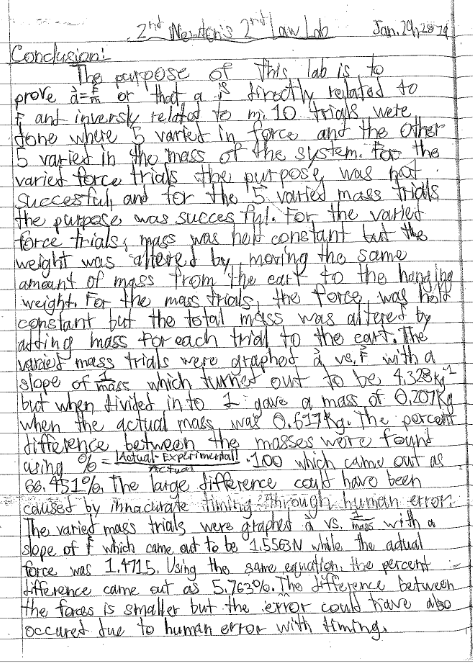 2nd Newton's 2nd Law Lab Jan. 29,
Conclusion:
The purpose of this lab is to
prove a=F/m or that a is directly related to
F and inversly related to m. 10 trials were
done where 5 varied in force and the other
5 varied in the mass of the system. For the
varied force trials the purpose was not
succesful and for the 5 varied mass trials
the purpose was succesful. For the varied
force trials, mass was held constant but the
weight was altered by moving the same
amount of mass from the cart to the hanging
weight. For the mass trials, the force was held
constant but the total mass was altered by
adding mass for each trial to the cart. The
varied mass trials were graphed a vs. F with a
slope of 1/mass which turned out to be 4.328kg-1
but when divided in to 1 gave a mass of 0.207kg
when the actual mass was 0.617kg. The percent
difference between the masses were found
using %= |Actual-Experimental|/Actual ·100 which came out as
66.451%. The large difference could have been
caused by innacurate timing through human error.
The varied mass trials were graphed a vs. 1/mass with a
slope of F which came out to be 1.5563N while the actual
force was 1.4715. Using the same equation, the percent
difference came out as 5.763%. The difference between
the forces is smaller but the error could have also
occured due to human error with timing.